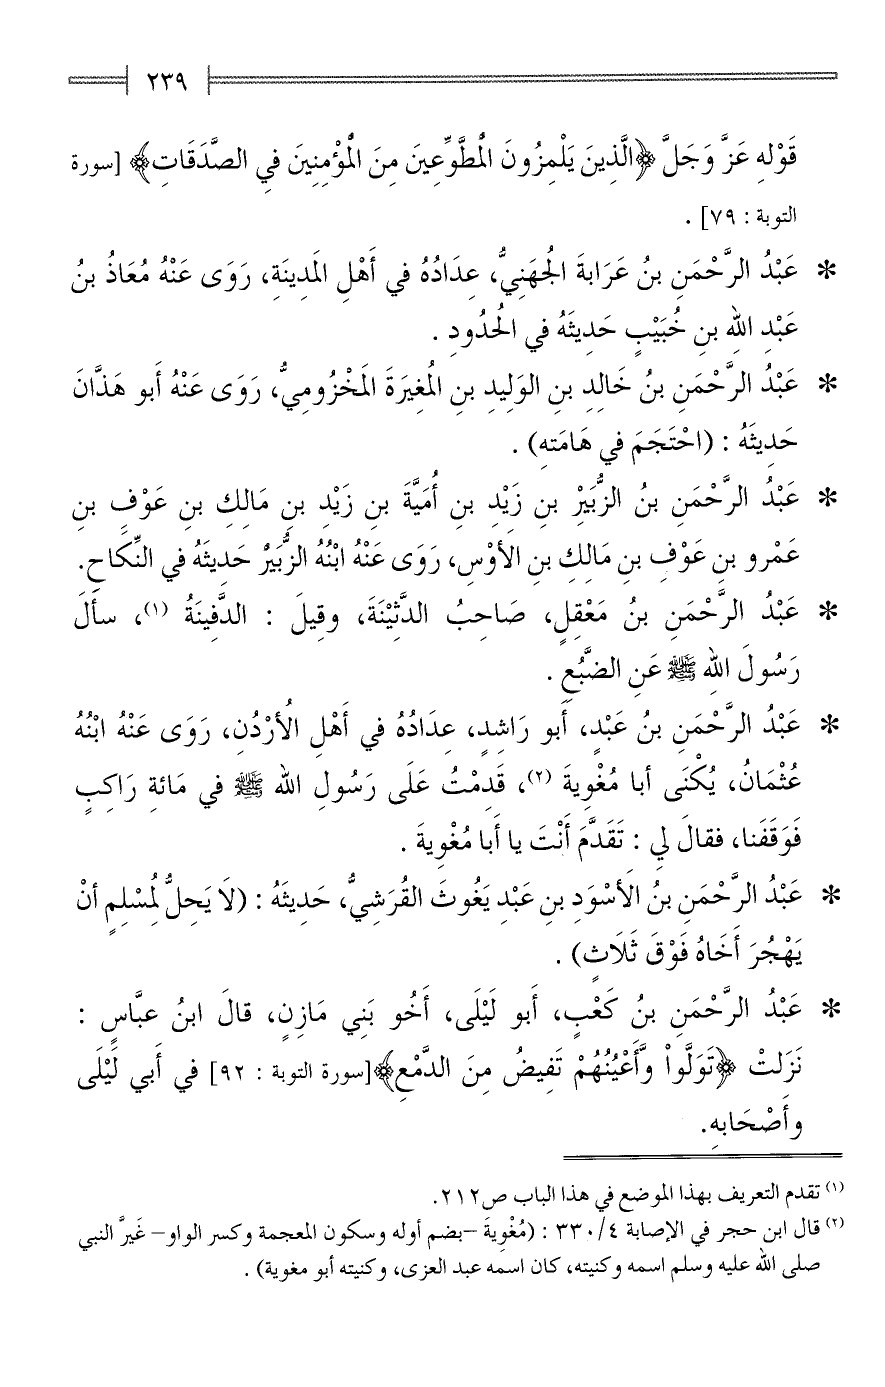 ٢٣٩
قَوْلِهِ عَزَّ وَجَلَّ ﴿الَّذِينَ يَلْمِزُونَ الْمُطَّوِّعِينَ مِنَ الْمُؤْمِنِينَ فِي الصَّدَقَاتِ﴾ [سورة
التوبة : ٧٩] .
* عَبْدُ الرَّحْمَنِ بنُ عَرَابةَ الجُهَنِيُّ، عِدَادُهُ في أَهْلِ المَدِينَةِ، رَوَى عَنْهُ مُعَاذُ بنُ
عَبْدِ الله بنِ خُبَيْبٍ حَدِيثَهُ في الحُدُودِ .
* عَبْدُ الرَّحْمَنِ بنُ خَالِدِ بنِ الوَلِيدِ بنِ المُغِيرَةَ المَخْزُومِيُّ، رَوَى عَنْهُ أبو هَذَّانَ
حَدِيثَهُ : (احْتَجَمَ في هَامَتهِ) .
* عَبْدُ الرَّحْمَنِ بنُ الزُّبَيْرِ بنِ زَيْدِ بنِ أُمَيَّةَ بنِ زَيْدِ بنِ مَالِكِ بنِ عَوْفِ بنِ
عَمْرو بنِ عَوْفِ بنِ مَالِكِ بنِ الأَوْسِ، رَوَى عَنْهُ ابْنُهُ الزُّبَيْرُ حَدِيثَهُ في النِّكَاحِ.
* عَبْدُ الرَّحْمَنِ بنُ مَعْقِلٍ، صَاحِبُ الدَّثِيْنَةَ، وقِيلَ : الدَّفِينَةُ (١)، سأَلَ
رَسُولَ اللهِ ﷺ عَنِ الضَّبُعِ .
* عَبْدُ الرَّحْمَنِ بنُ عَبْدٍ، أبو رَاشِدٍ، عِدَادُهُ في أَهْلِ الأُرْدُنِ، رَوَى عَنْهُ ابْنُهُ
عُثْمَانُ، يُكْنَى أبا مُغْوِيةَ (٢)، قَدِمْتُ عَلَى رَسُولِ الله ﷺ في مَائةِ رَاكِبٍ
فَوَقَفَنا، فقالَ لِي : تَقَدَّمَ أَنْتَ يا أَبا مُغْوِيةَ .
* عَبْدُ الرَّحْمَنِ بنُ الأَسْوَدِ بنِ عَبْدِ يَغُوثَ القُرَشِيُّ، حَدِيثَهُ : (لاَ يَحِلُّ لِمُسْلِمٍ أنْ
يَهْجُرَ أَخَاهُ فَوْقَ ثَلَاثٍ) .
* عَبْدُ الرَّحْمَنِ بنُ كَعْبٍ، أبو لَيْلَى، أَخُو بَنِي مَازِنٍ، قالَ ابنُ عبَّاسٍ :
نَزَلتْ ﴿تَوَلَّواْ وَّأَعْيُنُهُمْ تَفِيضُ مِنَ الدَّمْعِ﴾[سورة التوبة : ٩٢] في أَبي لَيْلَى
وأَصْحَابهِ.
(١) تقدم التعريف بهذا الموضع في هذا الباب ص٢١٢.
(٢) قال ابن حجر في الإصابة ٣٣٠/٤ : (مُغْوِيةَ –بضم أوله وسكون المعجمة وكسر الواو– غَيرَّ النبي
صلى الله عليه وسلم اسمه وكنيته، كان اسمه عبد العزى، وكنيته أبو مغوية) .